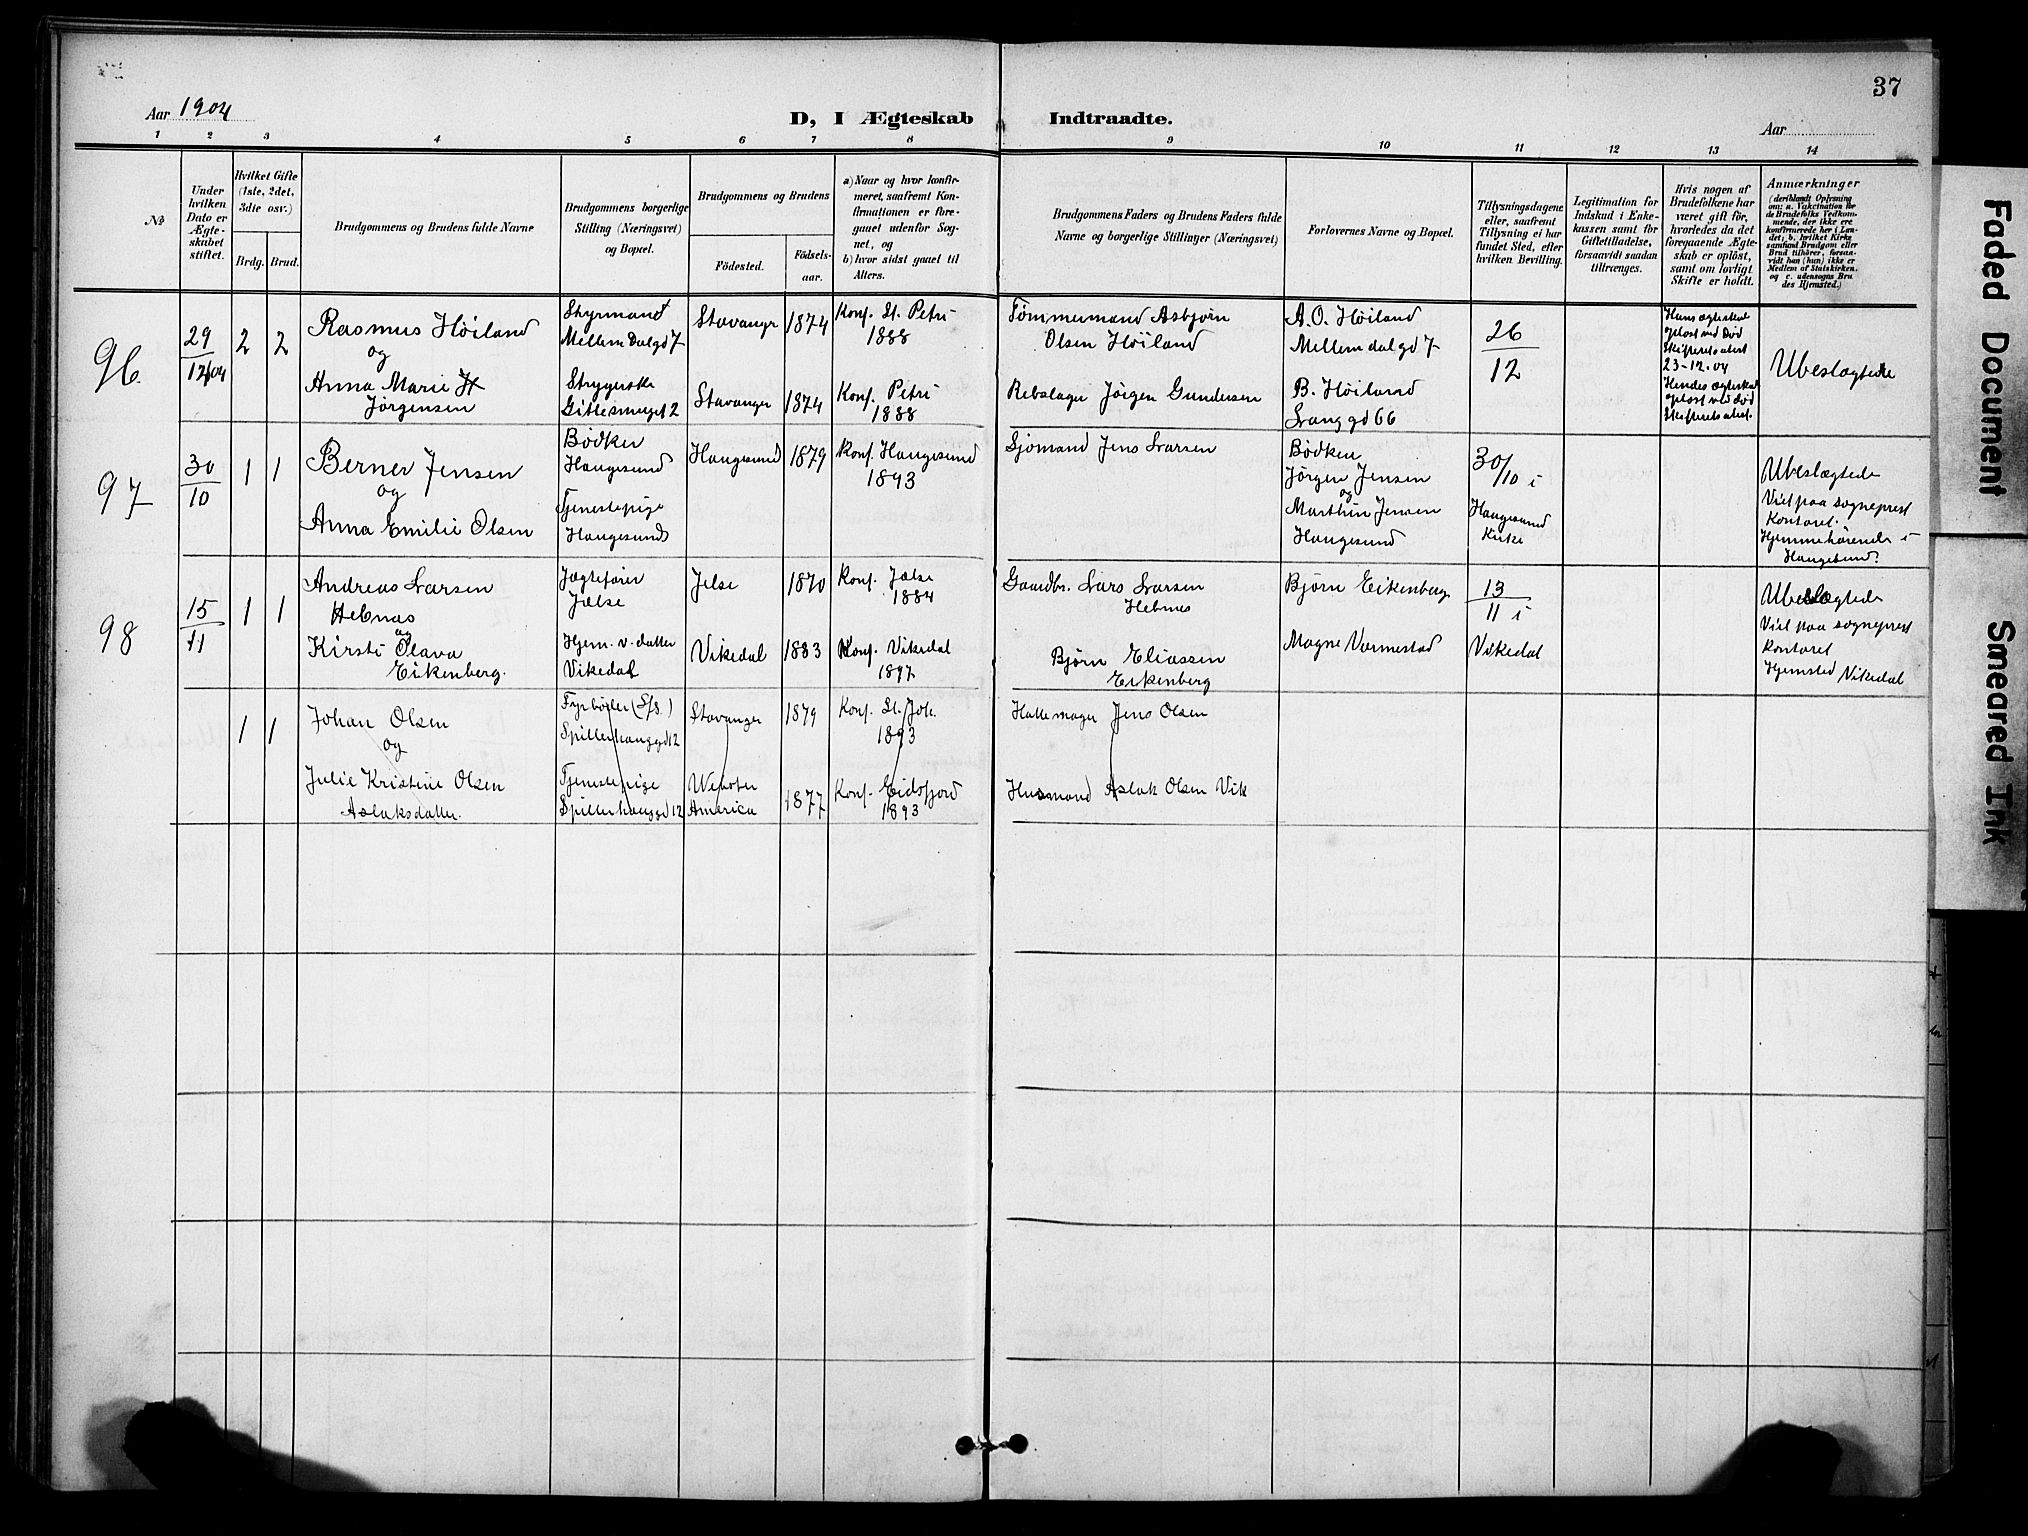 37
Aar 1904
D, I Ægteskab Indtraadte.
Aar
1 2 3 4 5 6 7 8 9 10 11 12 13 14
No
Under hvilken Dato er Ægteskabet stiftet.
Hvilket Gifte (1ste, 2det, 3die osv.)
Brdg. Brud.
Brudgommens og Brudens fulde Navne
Brudgommens borgerlige Stilling (Næringsvei) og Bopæl.
Brudgommens og Brudens
Födested.
Födselsaar.
a) Naar og hvor konfirmeret, saafremt Konfirmationen er foregaaet udenfor Sognet, og
b) hvor sidst gaaet til Alters.
Brudgommens Faders og Brudens Faders fulde Navne og borgerlige Stillinger (Næringsvei)
Forlovernes Navne og Bopæl.
Tillysningsdagene eller, saafremt Tillysning ei har fundet Sted, efter hvilken Bevilling.
Legitimation for Indskud i Enkekassen samt for Giftetilladelse, forsaavidt saadan tiltrænges.
Hvis nogen af Brudefolkene har været gift før, hvorledes da det foregaaende Ægteskab er opløst, samt om lovligt Skifte er holdt.
Anmærkninger (deriblandt Oplysning om: a. Vakcination for de Brudefolks Vedkommende, der ikke ere konfirmerede her i Landet; b. hvilket Kirkesamfund Brudgom eller Brud tilhører, forsaavidt han (hun) ikke er Medlem af Statskirken, og c. udensogns Brudes Hjemsted.)
96. 29/12 04 2 2
Rasmus Höiland
og
Anna Marie H
Jørgensen
Styrmand
Mellem Dalgd 7
Strygerske
Gittesmuget 2
Stavanger 1874
Stavanger 1874
Konf. St. Petri
1888
Konf. Petri
1888
Tömmermand Asbjørn
Olsen Höiland
Rebslager Jörgen Gundersen
A.O. Höiland
Mellemdalgd 7
B. Höiland
Langgd 66
26/12
Hans ægteskab
opløst ved Død
Skifteretsattest
23-12-04
Hendes ægteskab
opløst ved Død
Skifteretsattest.
Ubeslægtede
97 30/10 1 1
Berner Jensen
og
Anna Emilie Olsen
Bødker
Haugesund
Tjenestepige
Haugesund
Haugesund 1879
Konf. Haugesund
1893
Sjømand Jens Larsen
Bødker
Jørgen Jensen
og
Marthin Jensen
Haugesund
30/10 i
Haugesund
Kirke
Ubeslægtede
Viet paa sogneprest
Kontoret.
Hjemmehørende i
Haugesund.
98 15/11 1 1
Andreas Larsen
Hebnæs
og
Kirsti Olava
Eikenberg.
Jægtefører
Jælse
Hjem. v. datter
Vikedal
Jelse 1870
Vikedal 1883
Konf. Jælse
1884
Konf. Vikedal
1897
Gaardbr. Lars Larsen
Hebnes
Bjørn Eliassen
Eikenberg
Bjørn Eikenberg
Magne Varmestad
13/11 i
Vikedal
Ubeslægtede
Viet paa sogneprest
Kontoret
Hjemsted Vikedal
1 1
Johan Olsen
og
Julie Kristine Olsen
Aslaksdatter.
Fyrbøter (S/S.)
Spilderhauggd 12
Tjenestepige
Spilderhauggd 12
Stavanger 1879
Webster
America 1877
Konf. St. Joh.
1893
Konf. Eidsfjord
1893
Hattemager Jens Olsen
Husmand Aslak Olsen Vik
Faded Document
Smeared Ink